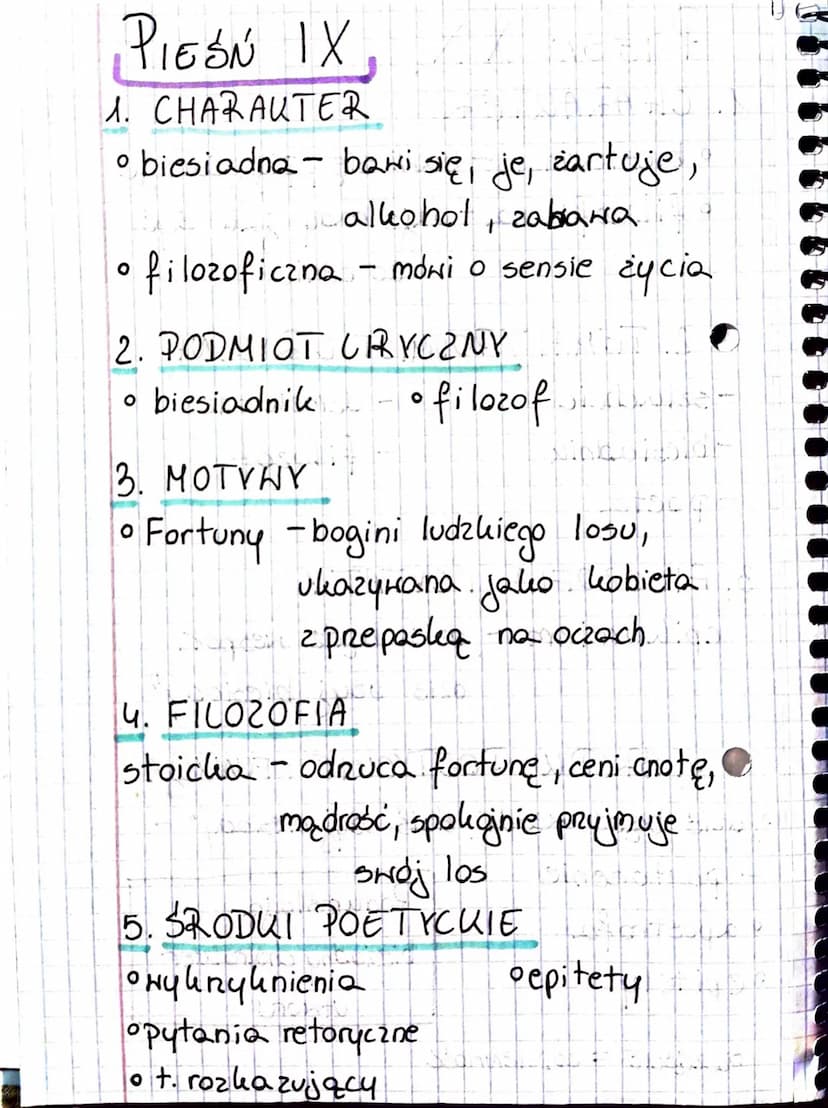 PIEŚŃ IX
1. CHARAKTER
° biesiadna - bawi się, je, żartuje,
alkohol, zabawa
° filozoficzna - mówi o sensie życia
2. PODMIOT LIRYCZNY
° biesiadnik ° filozof
3. MOTYWY
° Fortuny - bogini ludzkiego losu,
ukazywana jako kobieta
z przepaską na oczach
4. FILOZOFIA
stoicka - odrzuca fortunę, ceni cnotę,
mądrość, spokojnie przyjmuje
swój los
5. ŚRODKI POETYCKIE
° wykrzyknienia ° epitety
° pytania retoryczne
° t. rozkazujący